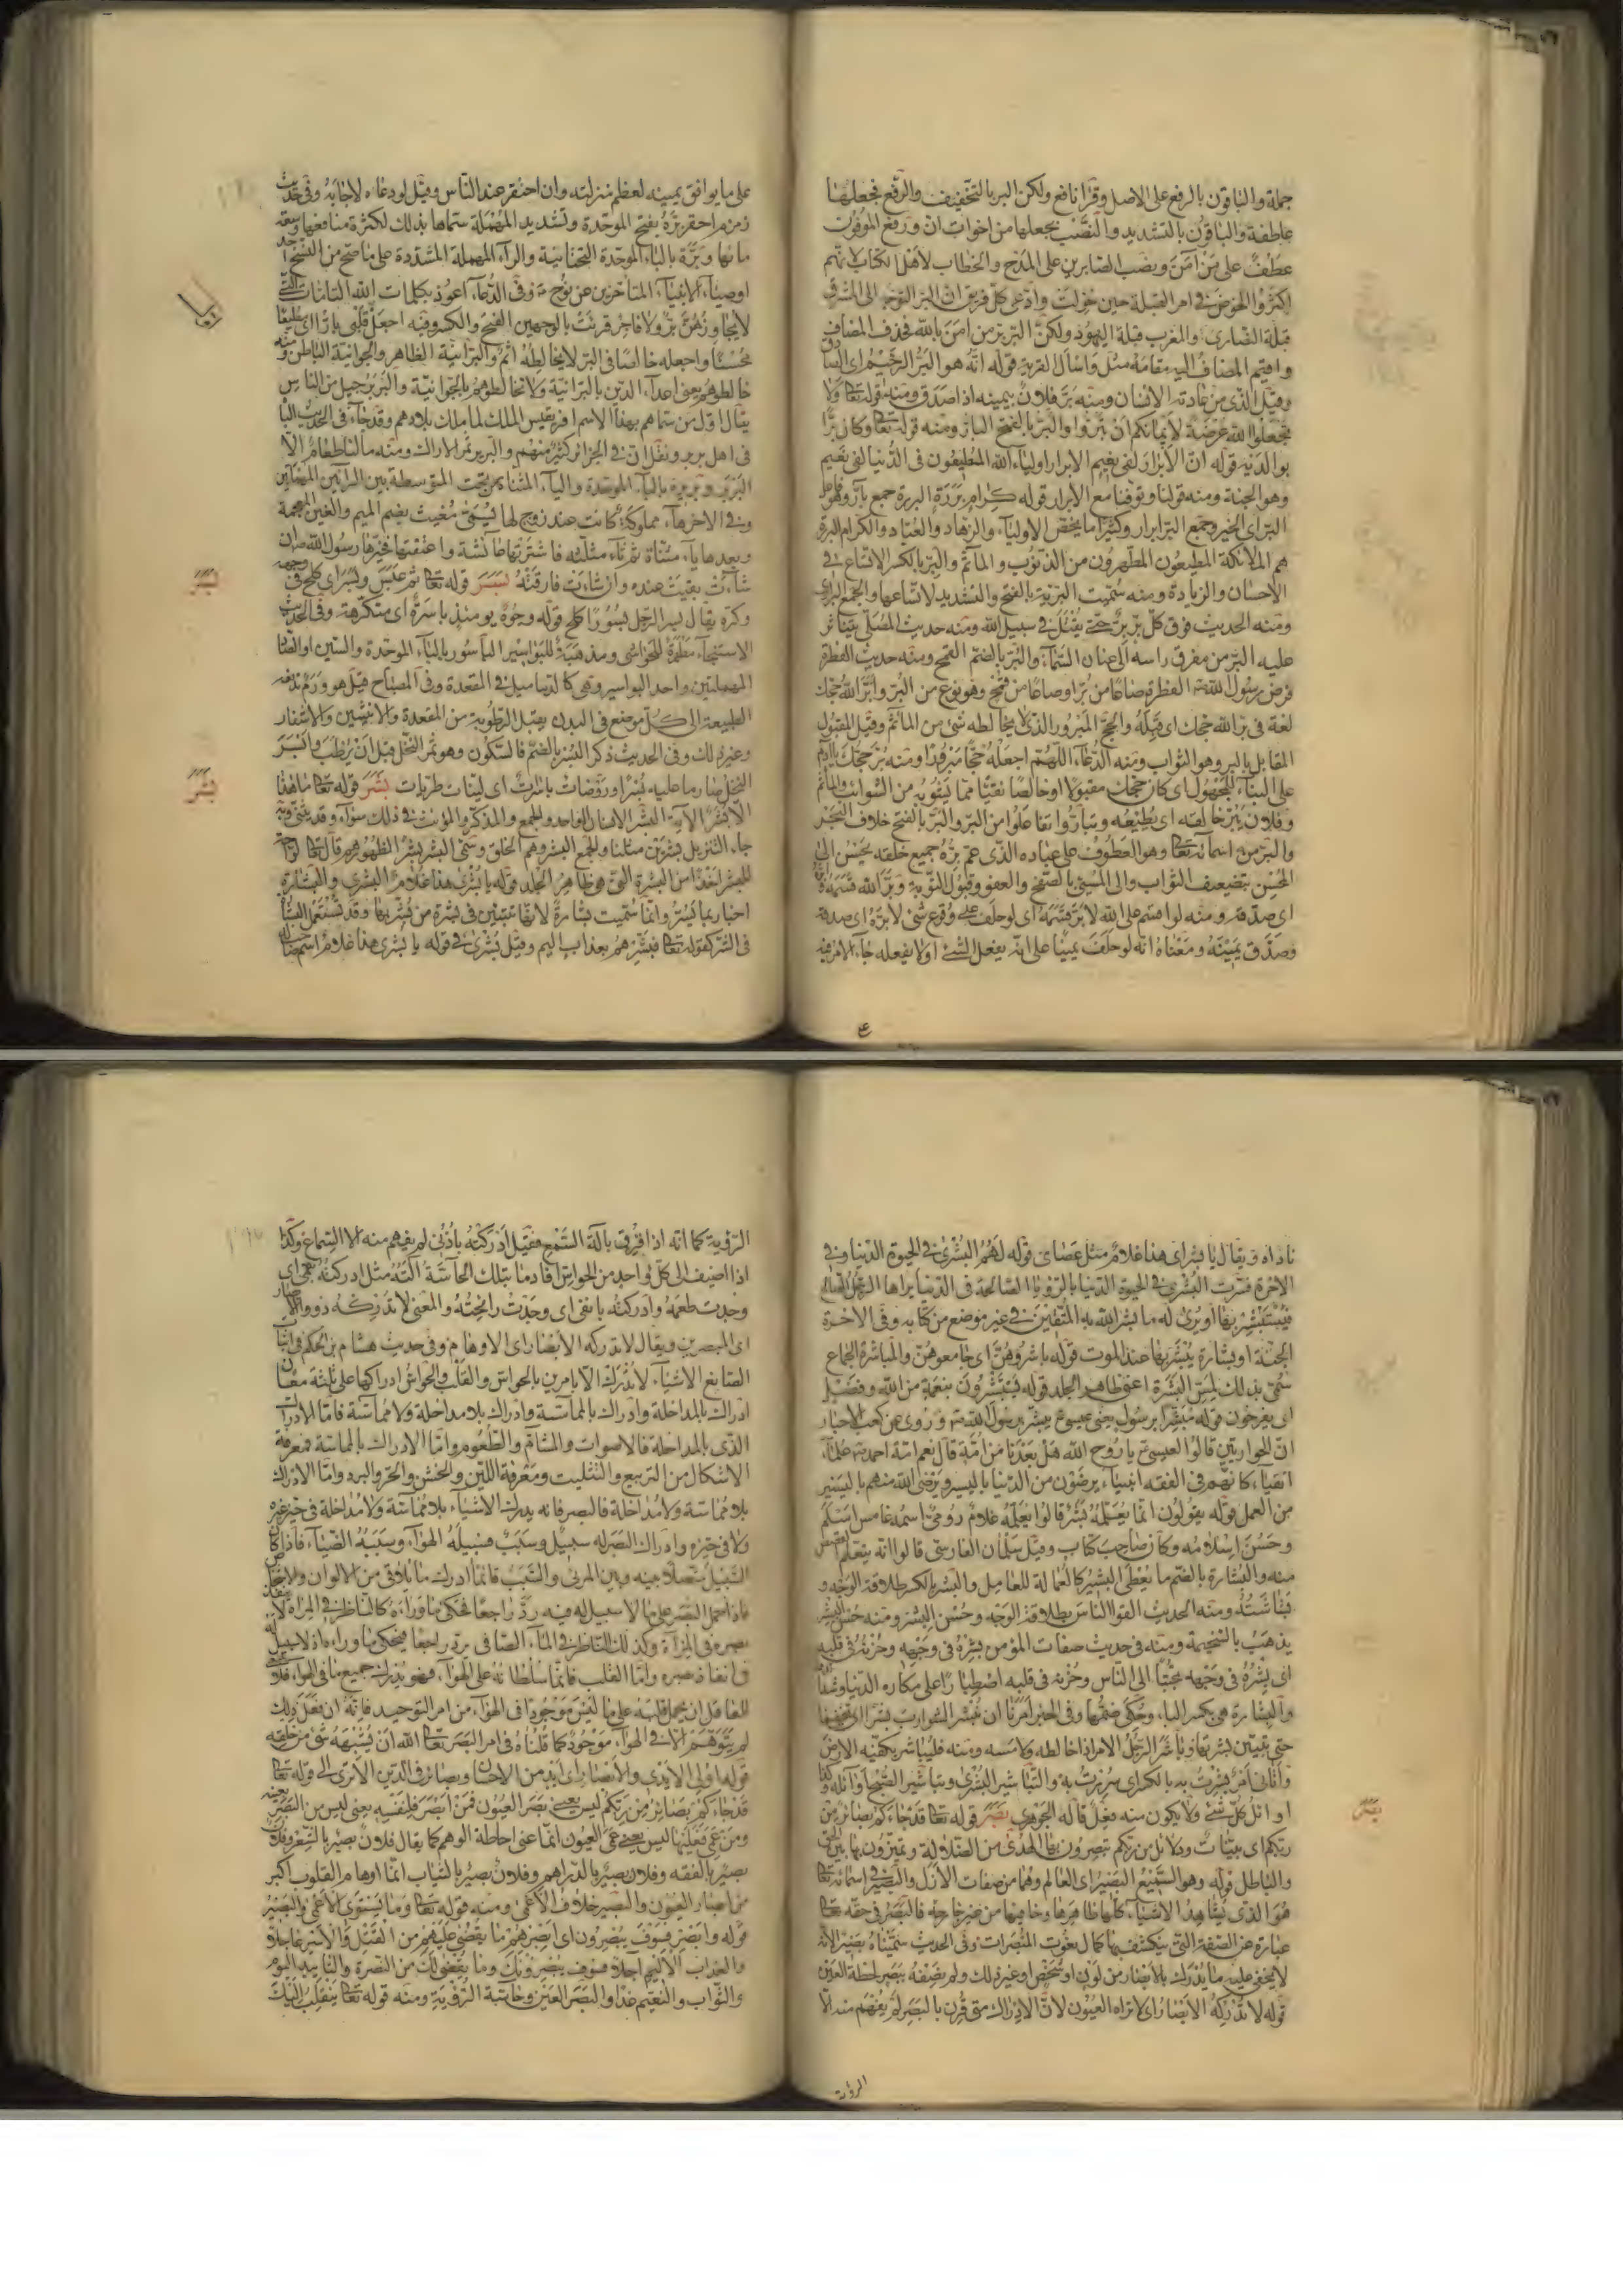 جملة والباقون بالرفع على الاصل وقرأ نافع ولكن البر بالتخفيف والرفع فجعلها
عاطفة والباقون بالتشديد والنصب يجعلها من اخوات ان ورفع الموفون
عطف على من آمن ونصب الصابرين على المدح والخطاب لاهل الكتاب لانهم
اكثروا الخوض في امر القبلة حين حولت وادعى كل فريق ان البر التوجه الى المشرق
قبلة النصارى والمغرب قبلة اليهود ولكن البر بر من آمن بالله فحذف المضاف
واقيم المضاف اليه مقامه مثل واسأل القرية قوله انه هو البر الرحيم اى الصادق
وقيل الذى من عادته الاحسان ومنه بر فلان بيمينه اذا صدق ومنه قوله تعالى ولا
تجعلوا الله عرضة لايمانكم ان تبروا والبر بالفتح البار ومنه قوله تعالى وكان برا
بوالديه قوله ان الابرار لفى نعيم الابرار اولياء الله المطيعون فى الدنيا لفى نعيم
وهو الجنة ومنه قوله وتوفنا مع الابرار قوله كرام بررة البررة جمع بار وهو فاعل
البر اى الخير وجمع البر ابرار وكثيرا ما يخص الاولياء والزهاد والعباد والكرام البررة
هم الملائكة المطيعون المطهرون من الذنوب والمآثم والبر بالكسر الاتساع فى
الاحسان والزيادة ومنه سميت البرية بالفتح والتشديد لاتساعها والجمع البرارى
ومنه الحديث فوق كل بر بر حتى يقتل فى سبيل الله ومنه حديث المصلى يتناثر
عليه البر من مفرق راسه الى عنان السماء والبر بالضم القمح ومنه حديث الفطرة
فرض رسول الله الفطرة صاعا من بر او صاعا من قمح وهو نوع من البر وابر الله حجك
لغة فى بر الله حجك اى قبله والحج المبرور الذى لا يخالطه شئ من المآثم وقيل المقبول
المقابل بالبر وهو الثواب ومنه الدعاء اللهم اجعله حجا مبرورا ومنه بر حجك
على البناء للمجهول اى كان حجك مقبولا او خالصا نقيا مما يشوبه من الشوائب والمآثم
وفلان يبر خالقه اى يطيعه وتباروا تفاعلوا من البر والبر بالفتح خلاف البحر
والبر من اسمائه تعالى وهو العطوف على عباده الذى عم بره جميع خلقه يحسن الى
المحسن بتضعيف الثواب والى المسئ بالصفح والعفو وقبول التوبة وبر الله قسمه
اى صدقه ومنه لو اقسم على الله لابر قسمه اى لو حلف على وقوع شئ لابره اى صدقه
وصدق يمينه ومعناه انه لو حلف يمينا على انه يفعل الشئ او لا يفعله جاء الامر فيه
على ما يوافق يمينه لعظم منزلته وان احتقر عند الناس وقيل لو دعاه لاجابه وفى حديث
زمزم احفر برة بفتح الموحدة وتشديد المهملة سماها بذلك لكثرة منافعها وسعة
مائها وبرة بالباء الموحدة التحتانية والراء المهملة المشددة على ما صح من النسخ احد
اوصياء الانبياء المتاخرين عن نوح وفى الدعاء اعوذ بكلمات الله التامات التى
لا يجاوزهن بر ولا فاجر قرئت بالوجهين الفتح والكسر وفيه اجعل قلبى بارا اى مطيعا
محسنا واجعله خالصا فى البر لا يخالطه اثم والبرانية الظاهر والجوانية الباطن ومنه
خالطوهم يعنى اعداء الدين بالبرانية ولا تخالطوهم بالجوانية والبربر جيل من الناس
يقال اول من سماهم بهذا الاسم افريقيس الملك لما ملك بلادهم وقد جاء فى الحديث
فى اهل بربر ونقل ان فى الجزائر كثير منهم والبرير ثمر الاراك ومنه ما لنا طعام الا
البرير وبريرة بالباء الموحدة والياء المثناة من تحت المتوسطة بين الرائين المهملتين
وفى الاخر هاء مملوكة كانت عند زوج لها يسمى مغيث بضم الميم والغين المعجمة
وبعدها ياء مثناة ثم ثاء مثلثة فاشترتها عائشة واعتقتها فخيرها رسول الله ان
شاءت بقيت عنده وان شاءت فارقته بسر قوله تعالى ثم عبس وبسر اى كلح فى وجهه
وكره يقال بسر الرجل بسورا كلح قوله وجوه يومئذ باسرة اى متكرهة وفى الحديث
الاستنجاء مطهرة للحواشى ومذهبة للبواسير الباسور بالباء الموحدة والسين او الصاد
المهملتين واحد البواسير وهى كالدماميل فى المقعدة وفى المصباح قيل هو ورم تدفعه
الطبيعة الى كل موضع فى البدن يقبل الرطوبة من المقعدة والانثيين والاشفار
وغير ذلك وفى الحديث ذكر البسر بالضم فالسكون وهو ثمر النخل قبل ان يرطب وابسر
النخل صار ما عليه بسرا وروضات باسرت اى لينات طريات بشر قوله تعالى ما هذا
الا بشر الاية البشر الانسان الواحد والجمع والمذكر والمؤنث فى ذلك سواء وقد يثنى وبه
جاء التنزيل بشرين مثلنا والجمع البشر وهم الخلق وسمى البشر بشرا لظهورهم قال تعالى لواحة
للبشر اخذا من البشرة التى هى ظاهر الجلد قوله يا بشرى هذا غلام البشرى والبشارة
اخبار بما يسر وانما سميت بشارة لانها تتبين فى بشرة من بشر بها وقد تستعمل البشارة
فى الشر كقوله تعالى فبشرهم بعذاب اليم وقيل بشرى فى قوله يا بشرى هذا غلام اسم صاحب له
بسر
بشر
ع
ناداه ويقال يا بشراى هذا غلام مثل عصاى قوله لهم البشرى فى الحيوة الدنيا وفى
الاخرة فسرت البشرى فى الحيوة الدنيا بالرؤيا الصالحة فى الدنيا يراها الرجل الصالح
فيستبشر بها او يرى له ما بشر الله به المتقين فى غير موضع من كتابه وفى الاخرة
الجنة او بشارة يبشر بها عند الموت قوله باشروهن اى جامعوهن والمباشرة الجماع
سمى بذلك لمس البشرة اعنى ظاهر الجلد قوله يستبشرون بنعمة من الله وفضل
اى يفرحون قوله مبشرا برسول يعنى عيسى يبشر برسول الله وروى عن كعب الاحبار
ان الحواريين قالوا لعيسى يا روح الله هل بعدنا من امة قال نعم امة احمد علماء
اتقياء كانهم فى الفقه انبياء يرضون من الدنيا باليسير ويرضى الله منهم باليسير
من العمل قوله يقولون انما يعلمه بشر قالوا يعلمه غلام رومى اسمه عامس اسلم
وحسن اسلامه وكان صاحب كتاب وقيل سلمان الفارسى قالوا انه يتعلم القصص
منه والبشارة بالضم ما يعطى البشير كالعمالة للعامل والبشر بالكسر طلاقة الوجه و
بشاشته ومنه الحديث القوا الناس بطلاقة الوجه وحسن البشر ومنه حسن البشر
يذهب بالسخيمة ومنه فى حديث صفات المؤمن بشره فى وجهه وحزنه فى قلبه
اى بشره فى وجهه تحببا الى الناس وحزنه فى قلبه اصطبارا على مكاره الدنيا وشدائدها
والبشارة هى بكسر الباء وحكى ضمها وفى الخبر امرنا ان نبشر الشوارب بشرا اى نحفيها
حتى تتبين بشرتها وباشر الرجل الامر اذا خالطه ولامسه ومنه فليباشر بكفيه الارض
واتانى امر بشرت به بالكسر اى سررت به والتباشير البشرى وتباشير الصبح اوائله وكذا
اوائل كل شئ ولا يكون منه فعل قاله الجوهرى بصر قوله تعالى قد جاءكم بصائر من
ربكم اى بينات ودلائل من ربكم تبصرون بها الهدى من الضلالة وتميزون بها بين الحق
والباطل قوله وهو السميع البصير اى العالم وهما من صفات الازل والبصير فى اسمائه تعالى
هو الذى يشاهد الاشياء كلها ظاهرها وخافيها من غير جارحة فالبصر فى حقه تعالى
عبارة عن الصفة التى ينكشف بها كمال نعوت المبصرات وفى الحديث سميناه بصيرا لانه
لا يخفى عليه ما يدرك بالابصار من لون او شخص او غير ذلك ولم نصفه ببصر لحظة العين
قوله لا تدركه الابصار اى لا تراه العيون لان الادراك متى قرن بالبصر لم يفهم منه الا
بصر
الرؤية
الرؤية كما انه اذا قرن بآلة السمع فقيل ادركته باذنى لم يفهم منه الا السماع وكذا
اذا اضيف الى كل واحد من الحواس افاد ما بتلك الحاسة آلته مثل ادركته بفمى اى
وجدت طعمه وادركته بانفى اى وجدت رائحته والمعنى لا تدركه ذووا الابصار
اى المبصرين ويقال لا تدركه الابصار اى الاوهام وفى حديث هشام بن الحكم فى اثبات
الصانع الاشياء لا تدرك الا بامرين بالحواس والقلب والحواس ادراكها على ثلثة معان
ادراك بالمداخلة وادراك بالمماسة وادراك بلا مداخلة ولا مماسة فاما الادراك
الذى بالمداخلة فالاصوات والمشام والطعوم واما الادراك بالمماسة فمعرفة
الاشكال من التربيع والتثليث ومعرفة اللين والخشن والحر والبرد واما الادراك
بلا مماسة ولا مداخلة فالبصر فانه يدرك الاشياء بلا مماسة ولا مداخلة فى حيز غيره
ولا فى حيزه وادراك البصر له سبيل وسبب فسبيله الهواء وسببه الضياء فاذا كان
السبيل متصلا بينه وبين المرئى والسبب قائما ادرك ما يلاقى من الالوان والاشخاص
فاذا حمل البصر على ما لا سبيل له فيه رد راجعا فحكى ما وراءه كالناظر فى المرآة لا ينفذ
بصره فى المرآة وكذلك الناظر فى الماء الصافى يرد راجعا فيحكى ما وراءه اذ لا سبيل له
فى انفاذ بصره واما القلب فانما سلطانه على الهواء فهو يدرك جميع ما فى الهواء فلا ينبغى
للعاقل ان يحمل قلبه على ما ليس موجودا فى الهواء من امر التوحيد فانه ان فعل ذلك
لم يتوهم الا ما فى الهواء موجود كما قلناه فى امر البصر تعالى الله ان يشبهه شئ من خلقه
قوله اولى الايدى والابصار اى ايد من الاحسان وبصائر فى الدين الا ترى الى قوله تعالى
قد جاءكم بصائر من ربكم ليس يعنى بصر العيون فمن ابصر فلنفسه يعنى ليس من البصر بعينه
ومن عمى فعليها ليس يعنى عمى العيون انما عنى احاطة الوهم كما يقال فلان بصير بالشعر وفلان
بصير بالفقه وفلان بصير بالدراهم وفلان بصير بالثياب انما اوهام القلوب اكبر
من ابصار العيون والبصير خلاف الاعمى ومنه قوله تعالى وما يستوى الاعمى والبصير
قوله وابصر فسوف يبصرون اى ابصرهم ما يقضى عليهم من القتل والاسر عاجلا
والعذاب الاليم اجلا فسوف يبصرونك وما يقضى لك من النصرة والتاييد اليوم
والثواب والنعيم غدا والبصر العين وحاسة الرؤية ومنه قوله تعالى ينقلب اليك